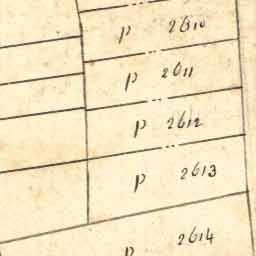 p 2610
p 2611
p 2612
p 2613
p 2614